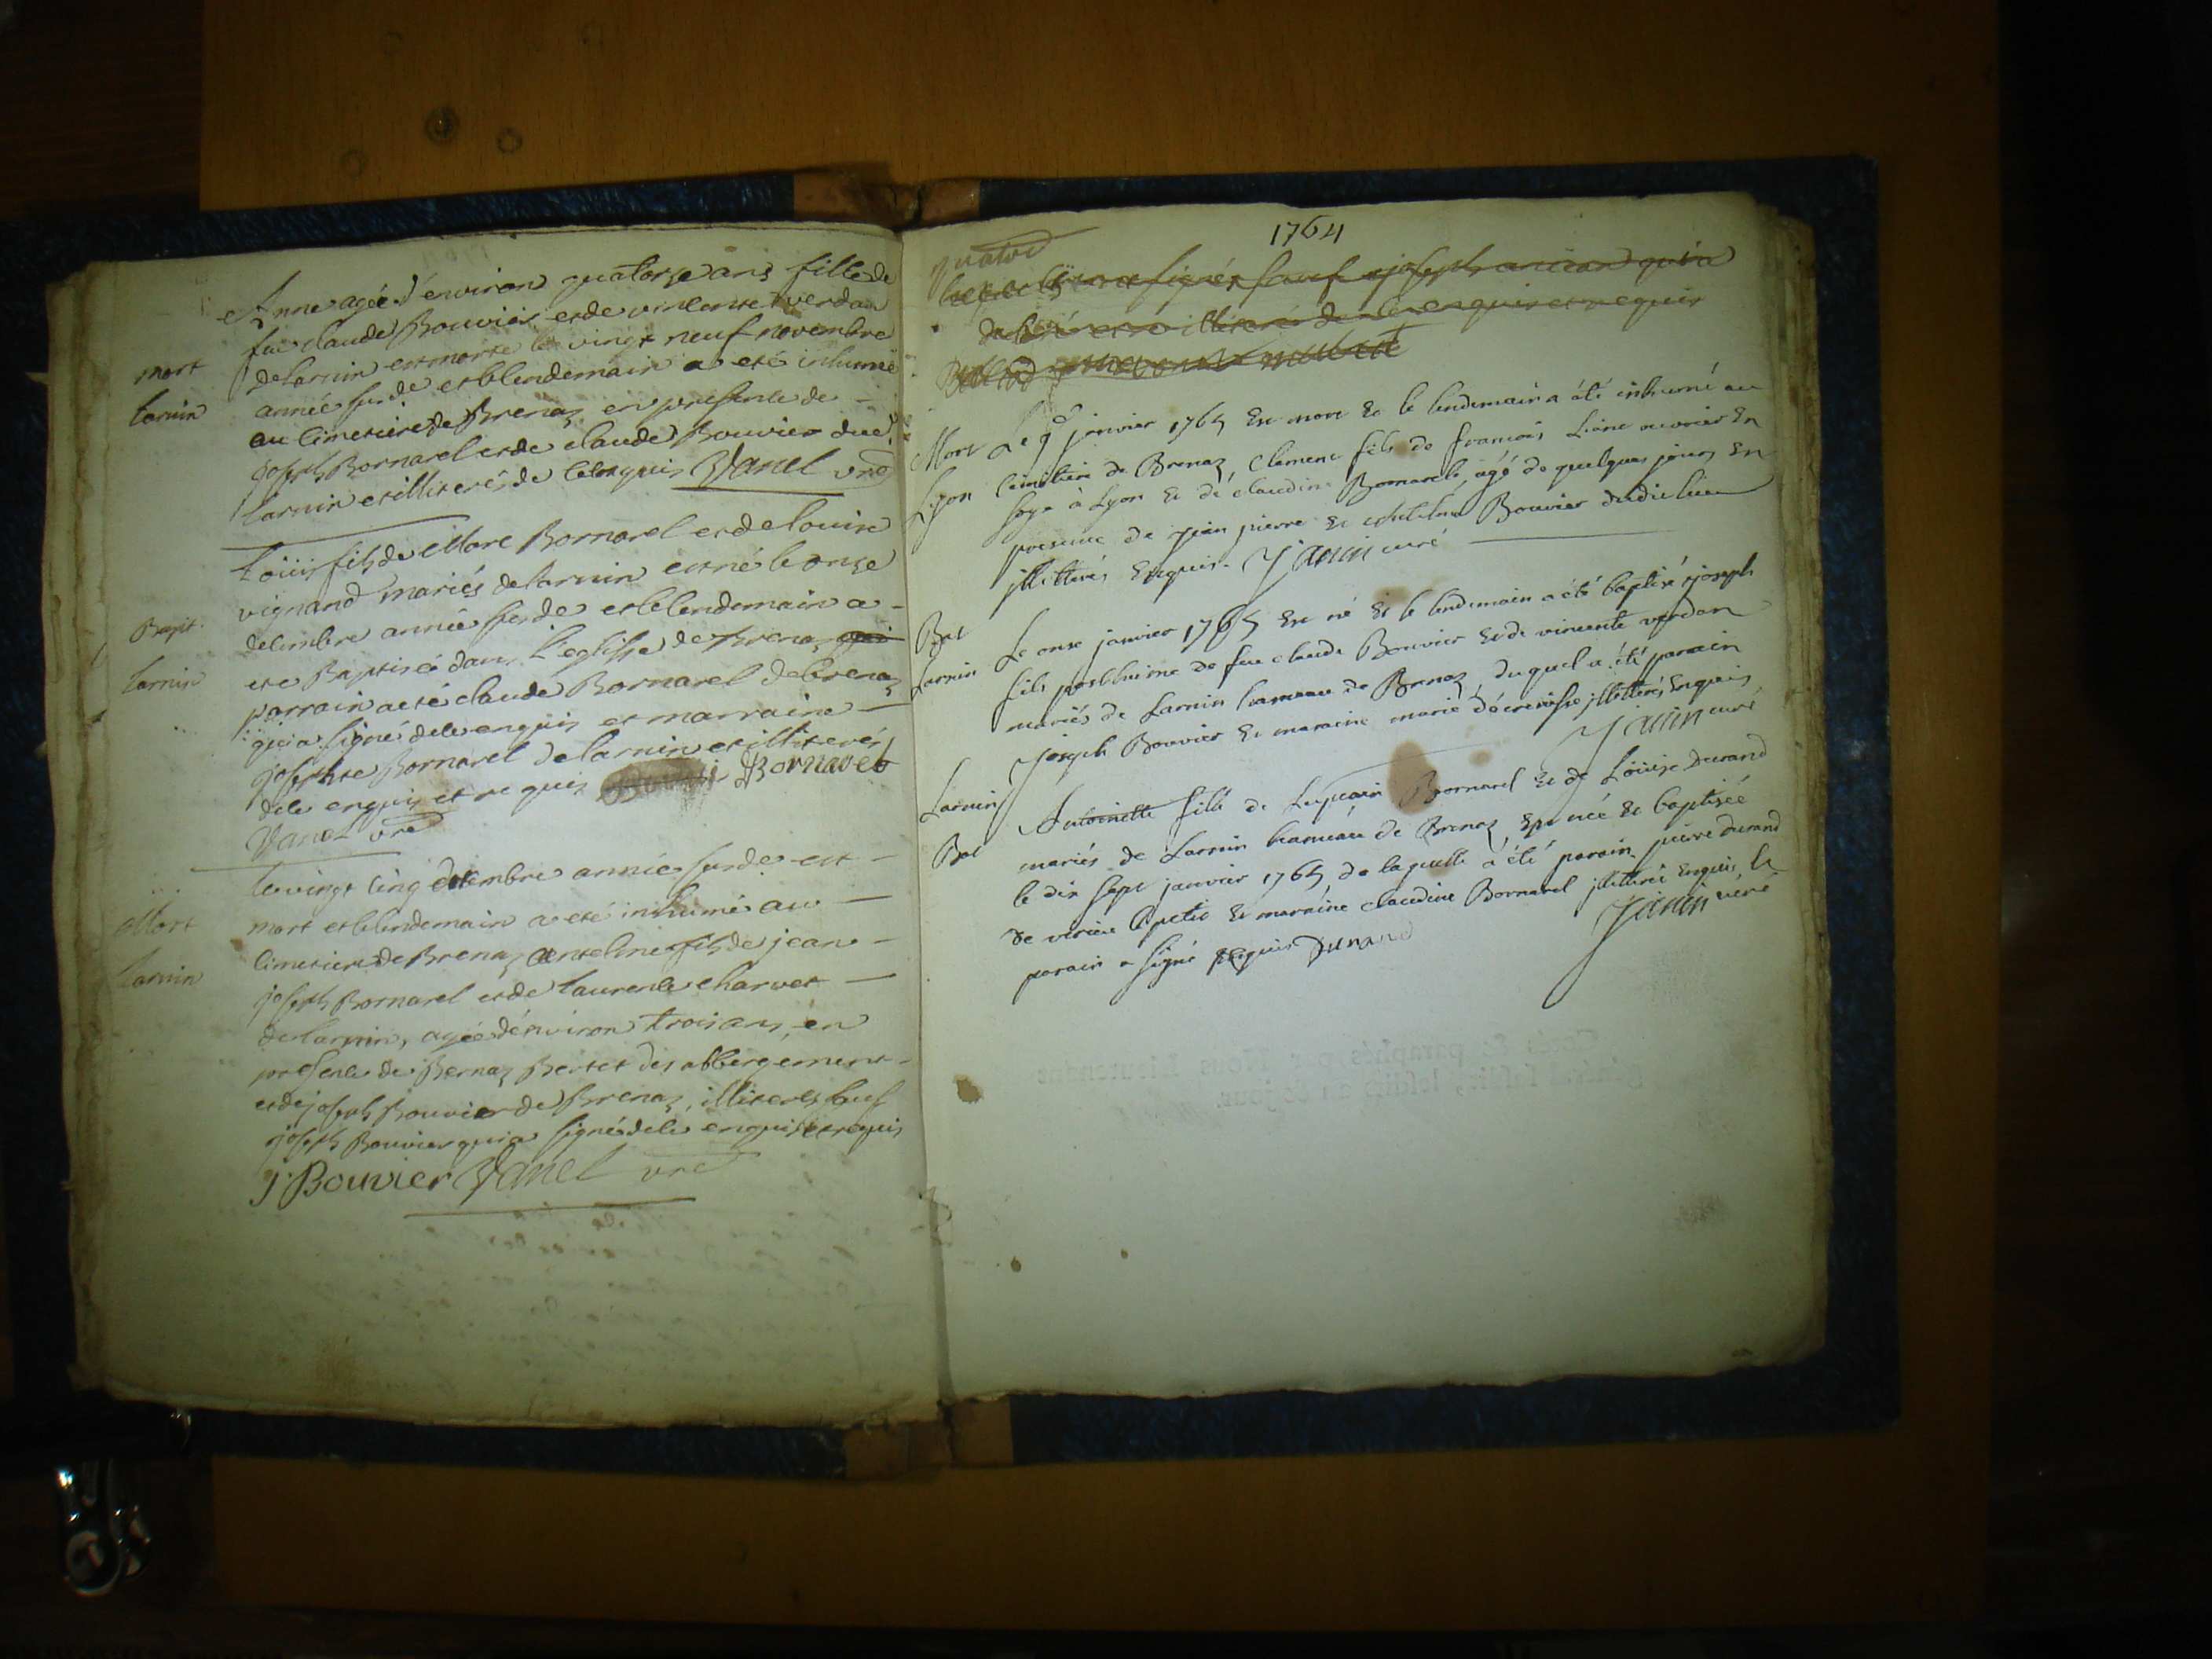 Anne agée d'environ quatorze ans fille de
feu claude Bouvier et de vincente verdan
de larnin est morte le vingt neuf novembre
mort
larnin
année susde et le lendemain a eté inhumé
au cimetiere de Brenaz en presence de
joseph Bornarel et de claude Bouvier dud.
larnin et illiterés de ce enquis Vanel vre
Loüis fils de Marc Bornarel et de louise
vignand mariés de larnin est né le onze
Bapt.
larnin
decembre année susde et le lendemain a
ete Baptisé dans l'eglisse de Brenaz
parrain a eté claude Bornarel de brenaz
qui a signé de ce enquis et marraine
josephte Bornarel de larnin et illiterés
de ce enquis et requis Bornarel
Vanel vre
le vingt cinq decembre année susde est
Mort
larnin
mort et le lendemain a eté inhumé au
cimetiere de Brenaz anselme fils de jean
joseph Bornarel et de laurence charvet
de larnin, agée d'environ trois ans, en
presence de Bernaz Bertet des abbergement
et de joseph Bouvier de Brenaz, illiterés sauf
joseph Bouvier qui a signé de ce enquis et requis
j. Bouvier Vanel vre
1764
signé sauf joseph ancian qui a
illiteré de ce enquis et requis
Mort
Lyon
Le 9e janvier 1765 est mort & le lendemain a été inhumé au
cimetiere de Brenaz, Clement fils de francois Liane ouvrier en
soye à Lyon & de claudine Bornarel, agé de quelques jours en
presence de jean pierre & Bouvier dudit lieu
jllitterés Enquis. Janin curé
Bat
Larnin
Le onze janvier 1765 est né & le lendemain a été baptisé joseph
fils posthume de feu claude Bouvier & de vincente verdan
mariés de Larnin hameau de Brenaz, duquel a été parain
joseph Bouvier & maraine marie jllitterés Enquis
Janin curé
Larnin
Bat
Antoinette fille de Bornarel & de Loüise Durand
mariés de Larnin hameau de Brenaz, est née & baptisée
le dix sept janvier 1765 de laquelle a été parain pierre Durand
de virieu le petit & maraine claudine Bornarel jllitterée Enquis, le
parain a signé Requis Durand
Janin curé